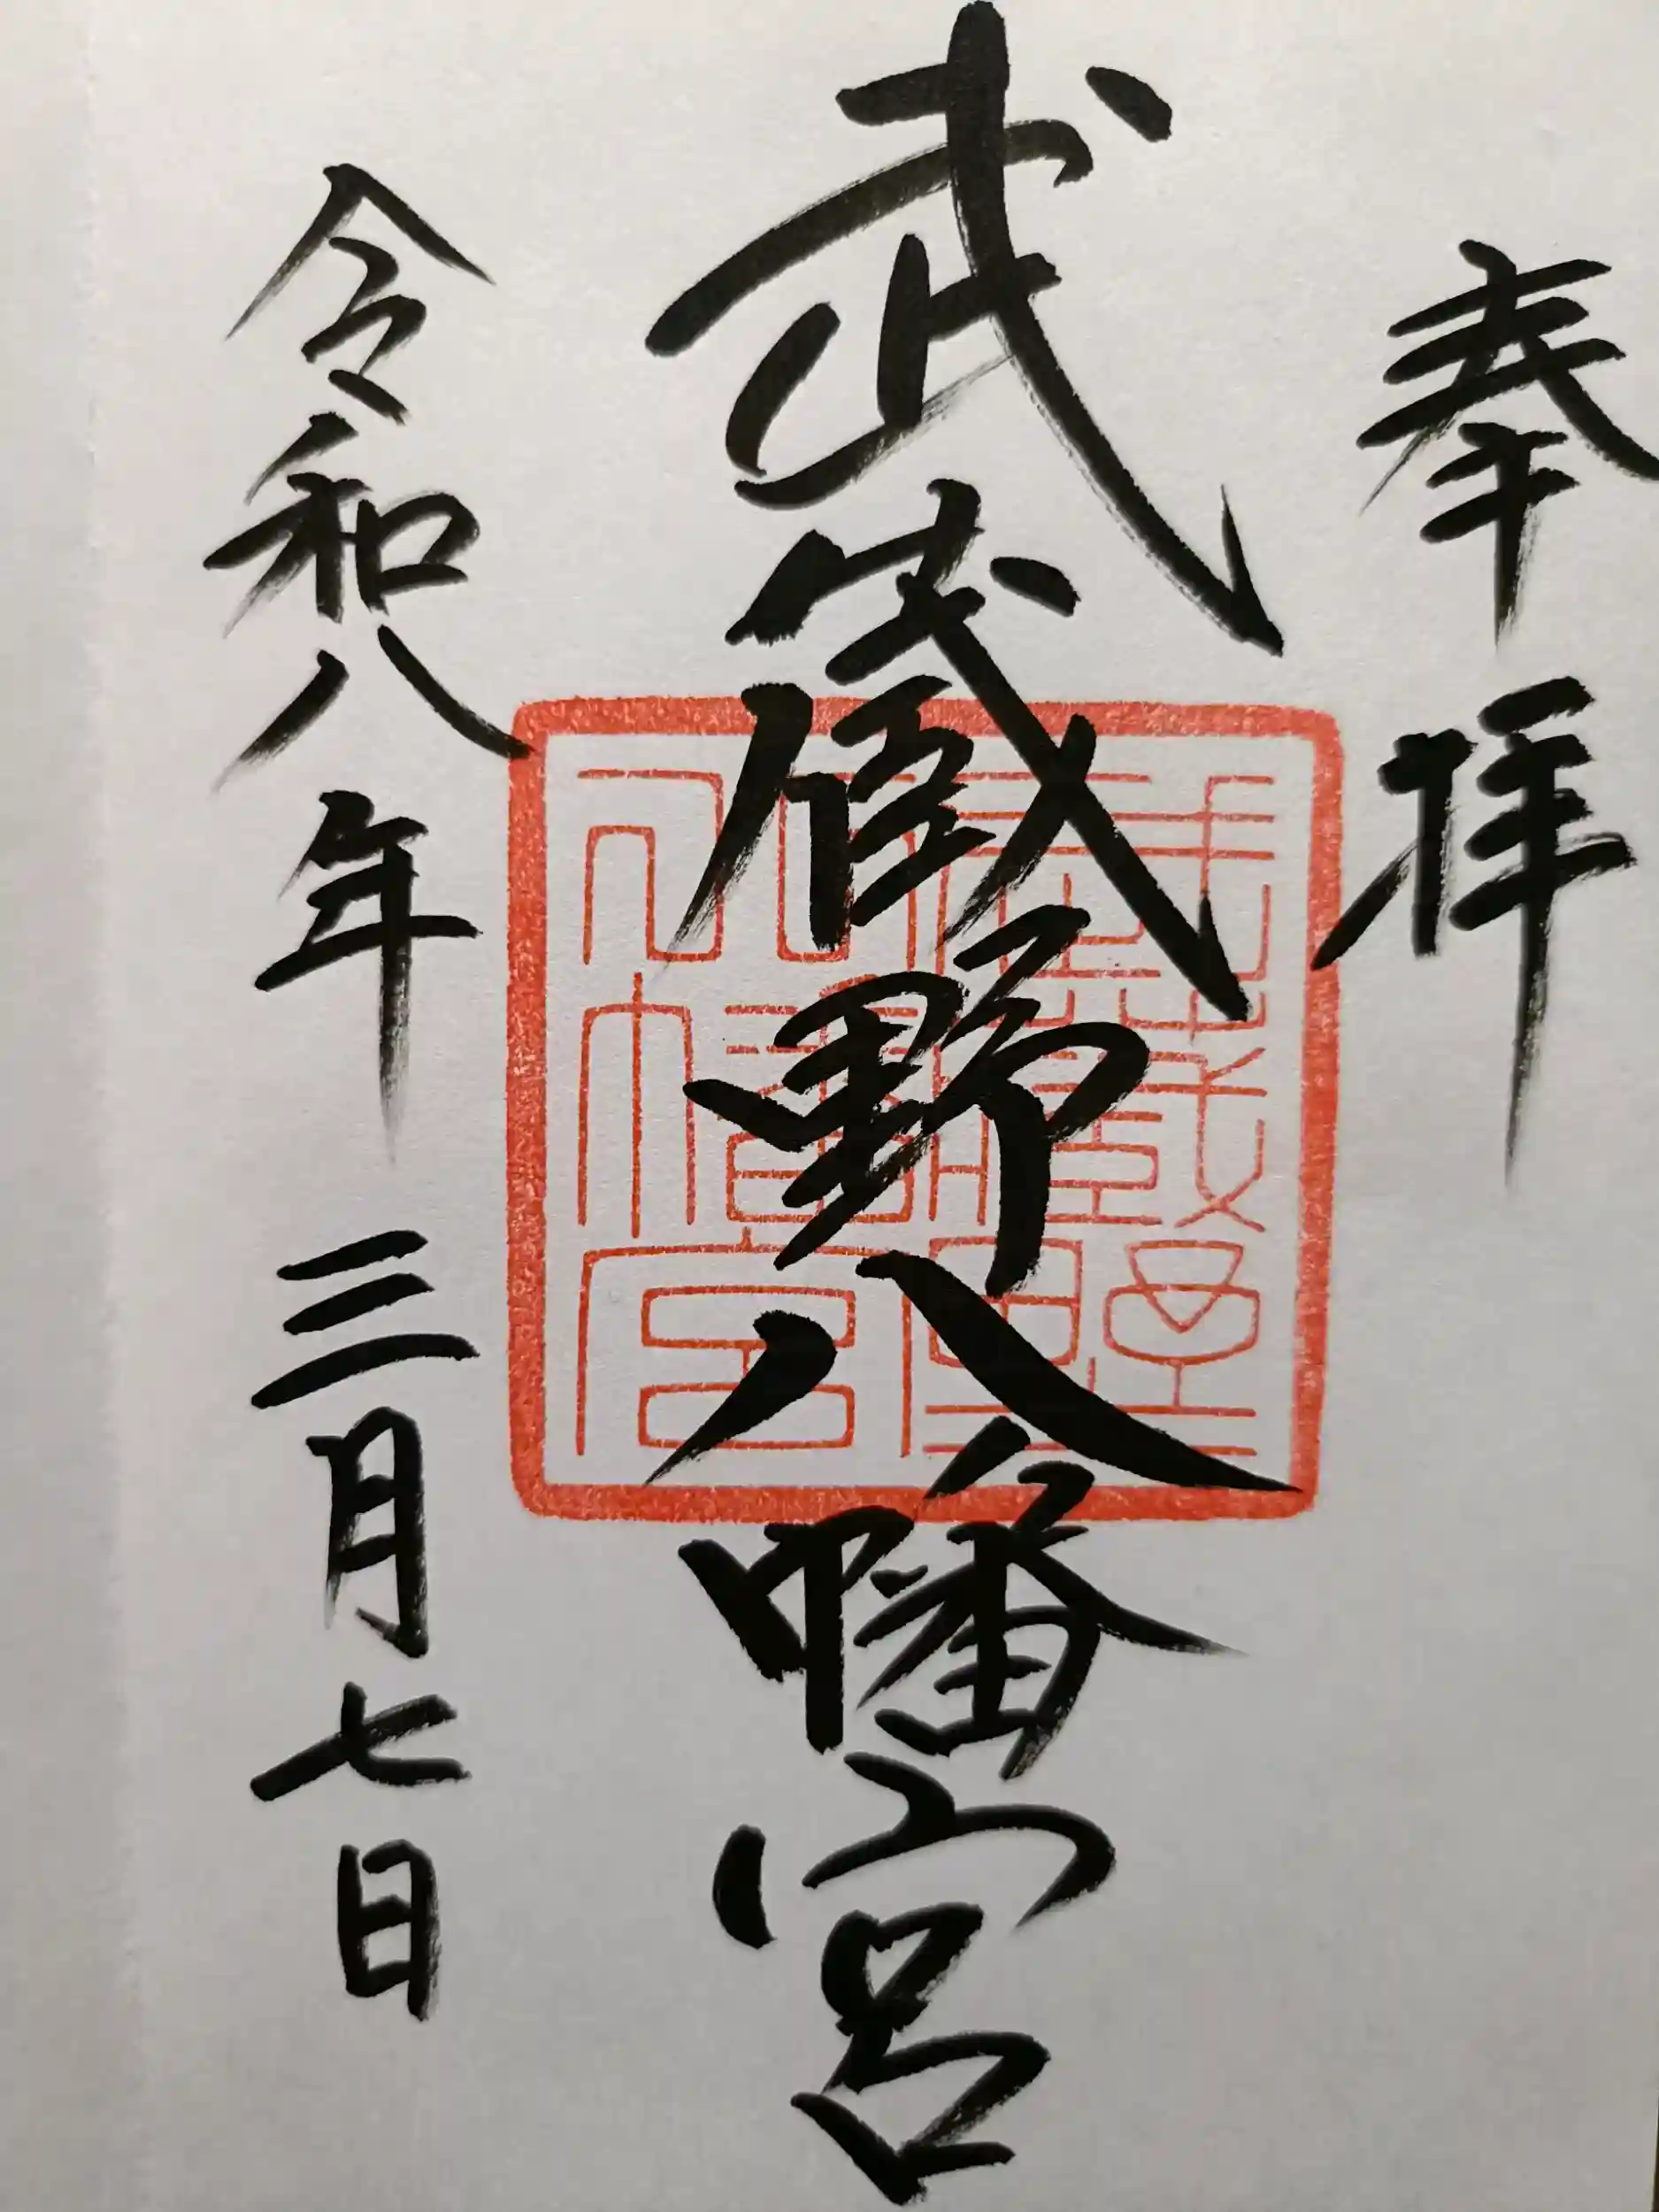 奉拝
武蔵野八幡宮
令和八年三月七日
武蔵野
八幡宮